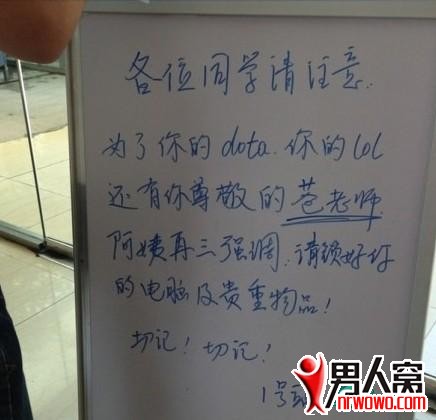 各位同学请注意.
为了你的dota.你的lol
还有你尊敬的苍老师.
阿姨再三强调.请锁好你
的电脑及贵重物品!
切记!切记!
1号
男人窝
nrwowo.com